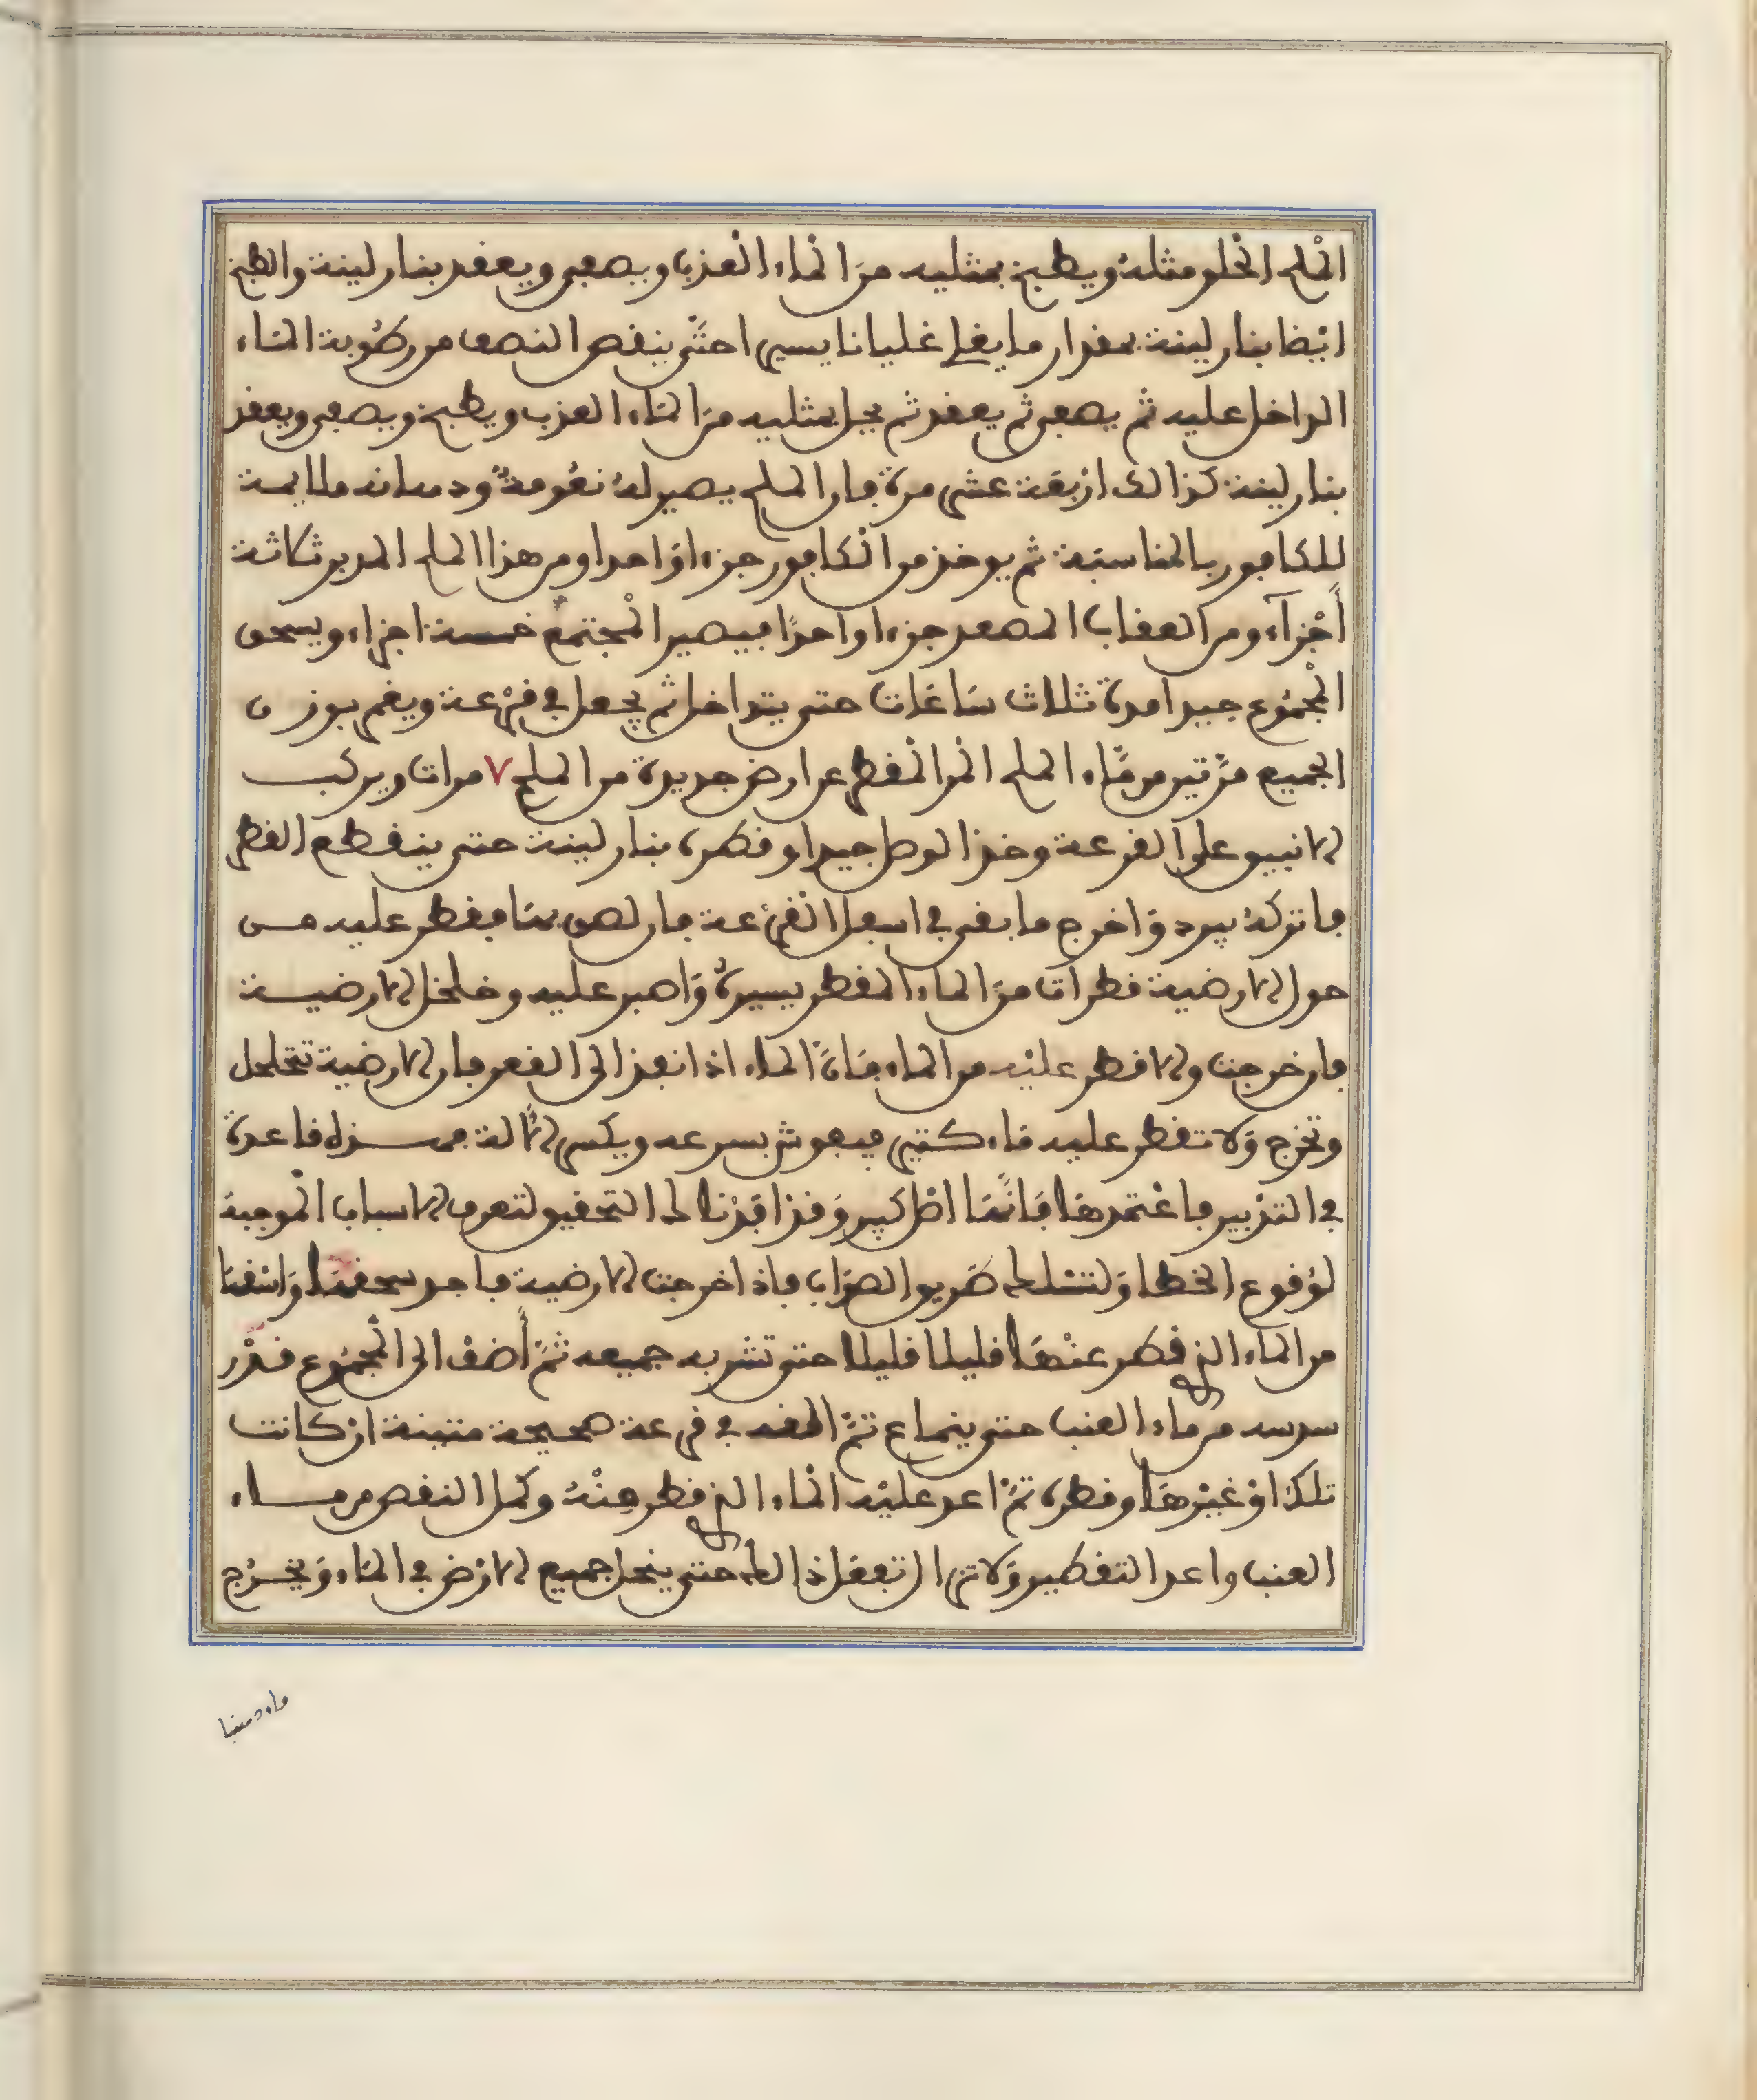 الملح الحلو مثله ويطبخ بمثليه من الماء العذب ويصفى ويعقد بنار لينة والطبخ
ايضا بنار لينة بمقدار ما يغلي غليانا يسيرا حتى ينقص النصف من رطوبة الماء
الداخل عليه ثم يصفى ثم يعقد ثم يحل بمثليه من الماء العذب ويطبخ ويصفى ويعقد
بنار لينة كذالك اربعة عشر مرة فان الملح يصير له نعومة ودهانه ملايمة
للكافور بالمناسبة ثم يوخذ من الكافور جزءا واحدا ومن هذا الملح المدبر ثلاثة
أجزآء ومن العقاب المصعد جزءا واحدا فيصير المجتمع خمسة اجزاء ويسحق
المجموع جيدا مدة ثلاث ساعات حتى يتداخل ثم يجعل في قرعة ويغمر بوزن
الجميع مرتين من ماء الملح المر المقطر عن ارض جديدة من الملح ٧ مرات ويركب
الانبيق على القرعة وخذ الوصل جيدا وقطره بنار لينة حتى ينقطع القطر
فاتركه يبرد واخرج ما بقى في اسفل القرعة فان لصق بها فقطر عليه من
حول الارضية قطرات من الماء المقطر يسيرة واصبر عليه وخلخل الارضية
فان خرجت والا قطر عليه من الماء فان الماء اذا نفذ الى القعر فان الارضية تتخلخل
وتخرج ولا تقطر عليه ماء كثير فيعوش بسرعه ويكسر الالة فهذه قاعدة
في التدبير فاعتمدها فانها اصل كبير وقد افدنا لك التحقيق لتعرف الاسباب الموجبة
لوقوع الخطا ولتسلك طريق الصواب فاذا خرجت الارضية فاجد سحقها واسقها
من الماء الذي قطر عنها قليلا قليلا حتى تشربه جميعه ثم أضف الى المجموع قدر
سدسه من ماء العنب حتى ينماع ثم القه في قرعة صحيحة متينة ان كانت
تلك او غيرها وقطره ثم اعد عليه الماء الذي قطر منه وكمل النقص من ماء
العنب واعد التقطير ولا تزال تفعل ذالك حتى ينحل جميع الارض في الماء ويخرج